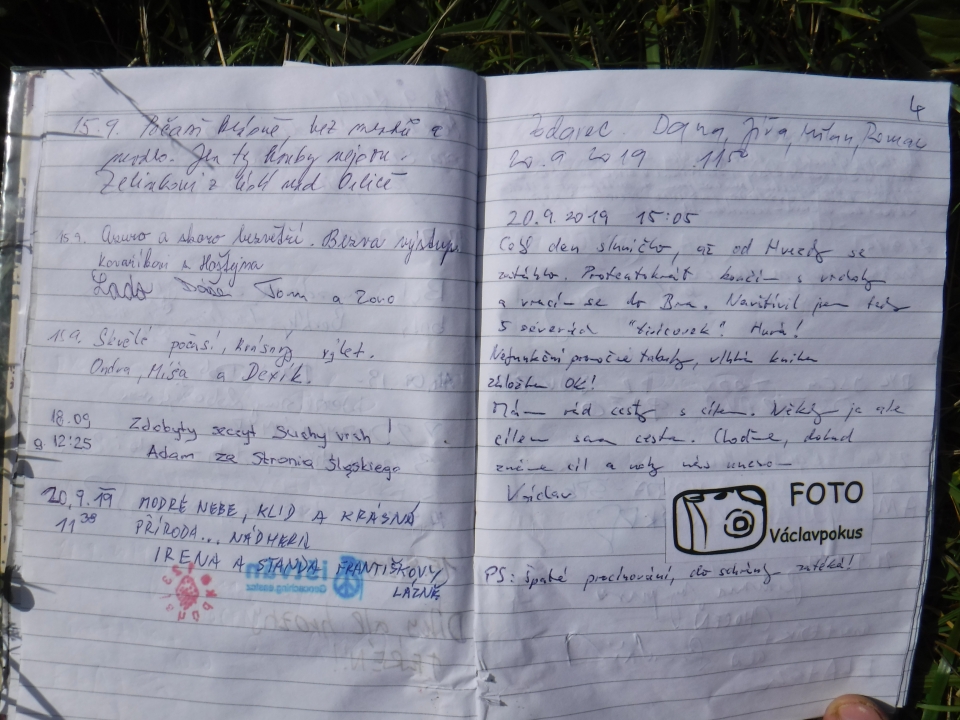 15.9. Počasí , bez mraků a
. Jen ty houby nejsou.
Zelinkovi z Ústí nad Orlicí
15.9. Azuro a skoro bezvětří. Bezva výstup.
Kovaříkovi z
Lada Dáša Tom a
15.9. Skvělé počasí, krásný výlet.
Ondra, Míša a Dexík.
18.09 Zdobyty szczyt Suchy vrch !
g 12:25 Adam ze Stronia Śląskiego
20.9.19 MODRÉ NEBE, KLID A KRÁSNÁ
11 38 PŘÍRODA... NÁDHERA
IRENA A STANDA FRANTIŠKOVY
LÁZNĚ
4
Dana, Jiřa, Milan, Roman
20.9 2019 11
20.9.2019 15:05
Celý den sluníčko, až od se
zatáhlo. Protentokrát končím s vrcholy
a vracím se do Brna. Navštívil jsem tedy
5 "tisícovek" Hurá!
Nefunkční promočené , vlhká kniha
OK!
Mám rád cesty s cílem. Někdy je ale
cílem sama cesta. Choďme, dokud
známe cíl a nohy nás unesou
Václav
FOTO
Václavpokus
PS: Špatné , do schránky zatéká!